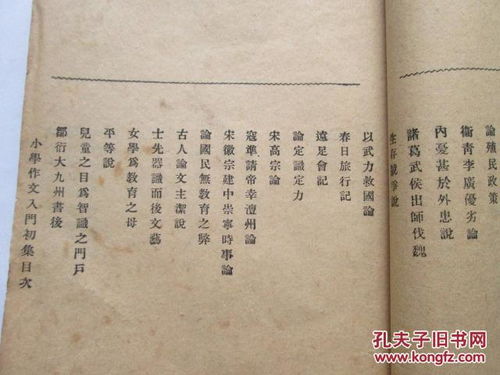 論殖民政策
衞青李廣優劣論
內憂甚於外患說
諸葛武侯出師伐魏
生存競爭說
以武力救國論
春日旅行記
遠足會記
論定識定力
宋高宗論
寇準請帝幸澶州論
宋徽宗建中崇寧時事論
論國民無教育之弊
古人論文主潔說
士先器識而後文藝
女學爲教育之母
平等說
兒童之目爲智識之門戶
鄒衍大九州書後
小學作文入門初集目次
孔夫子旧书网
www.kongfz.com